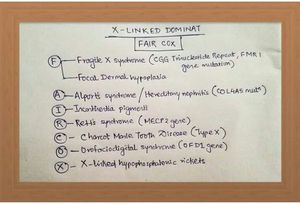 X-LINKED DOMINAT
FAIR COX
F Fragile X syndrome (CGG Trinucleotide Repeat, FMR1
gene mutation)
Focal Dermal hypoplasia
A Alport's syndrome / Hereditary nephritis (COL4A5 mutn)
I Incontinentia pigmenti
R Rett's syndrome (MECP2 gene)
C Charcot Marie Tooth Disease (Type X)
O Orofaciodigital syndrome (OFD1
gene)
X X-linked hypophosphatemic rickets